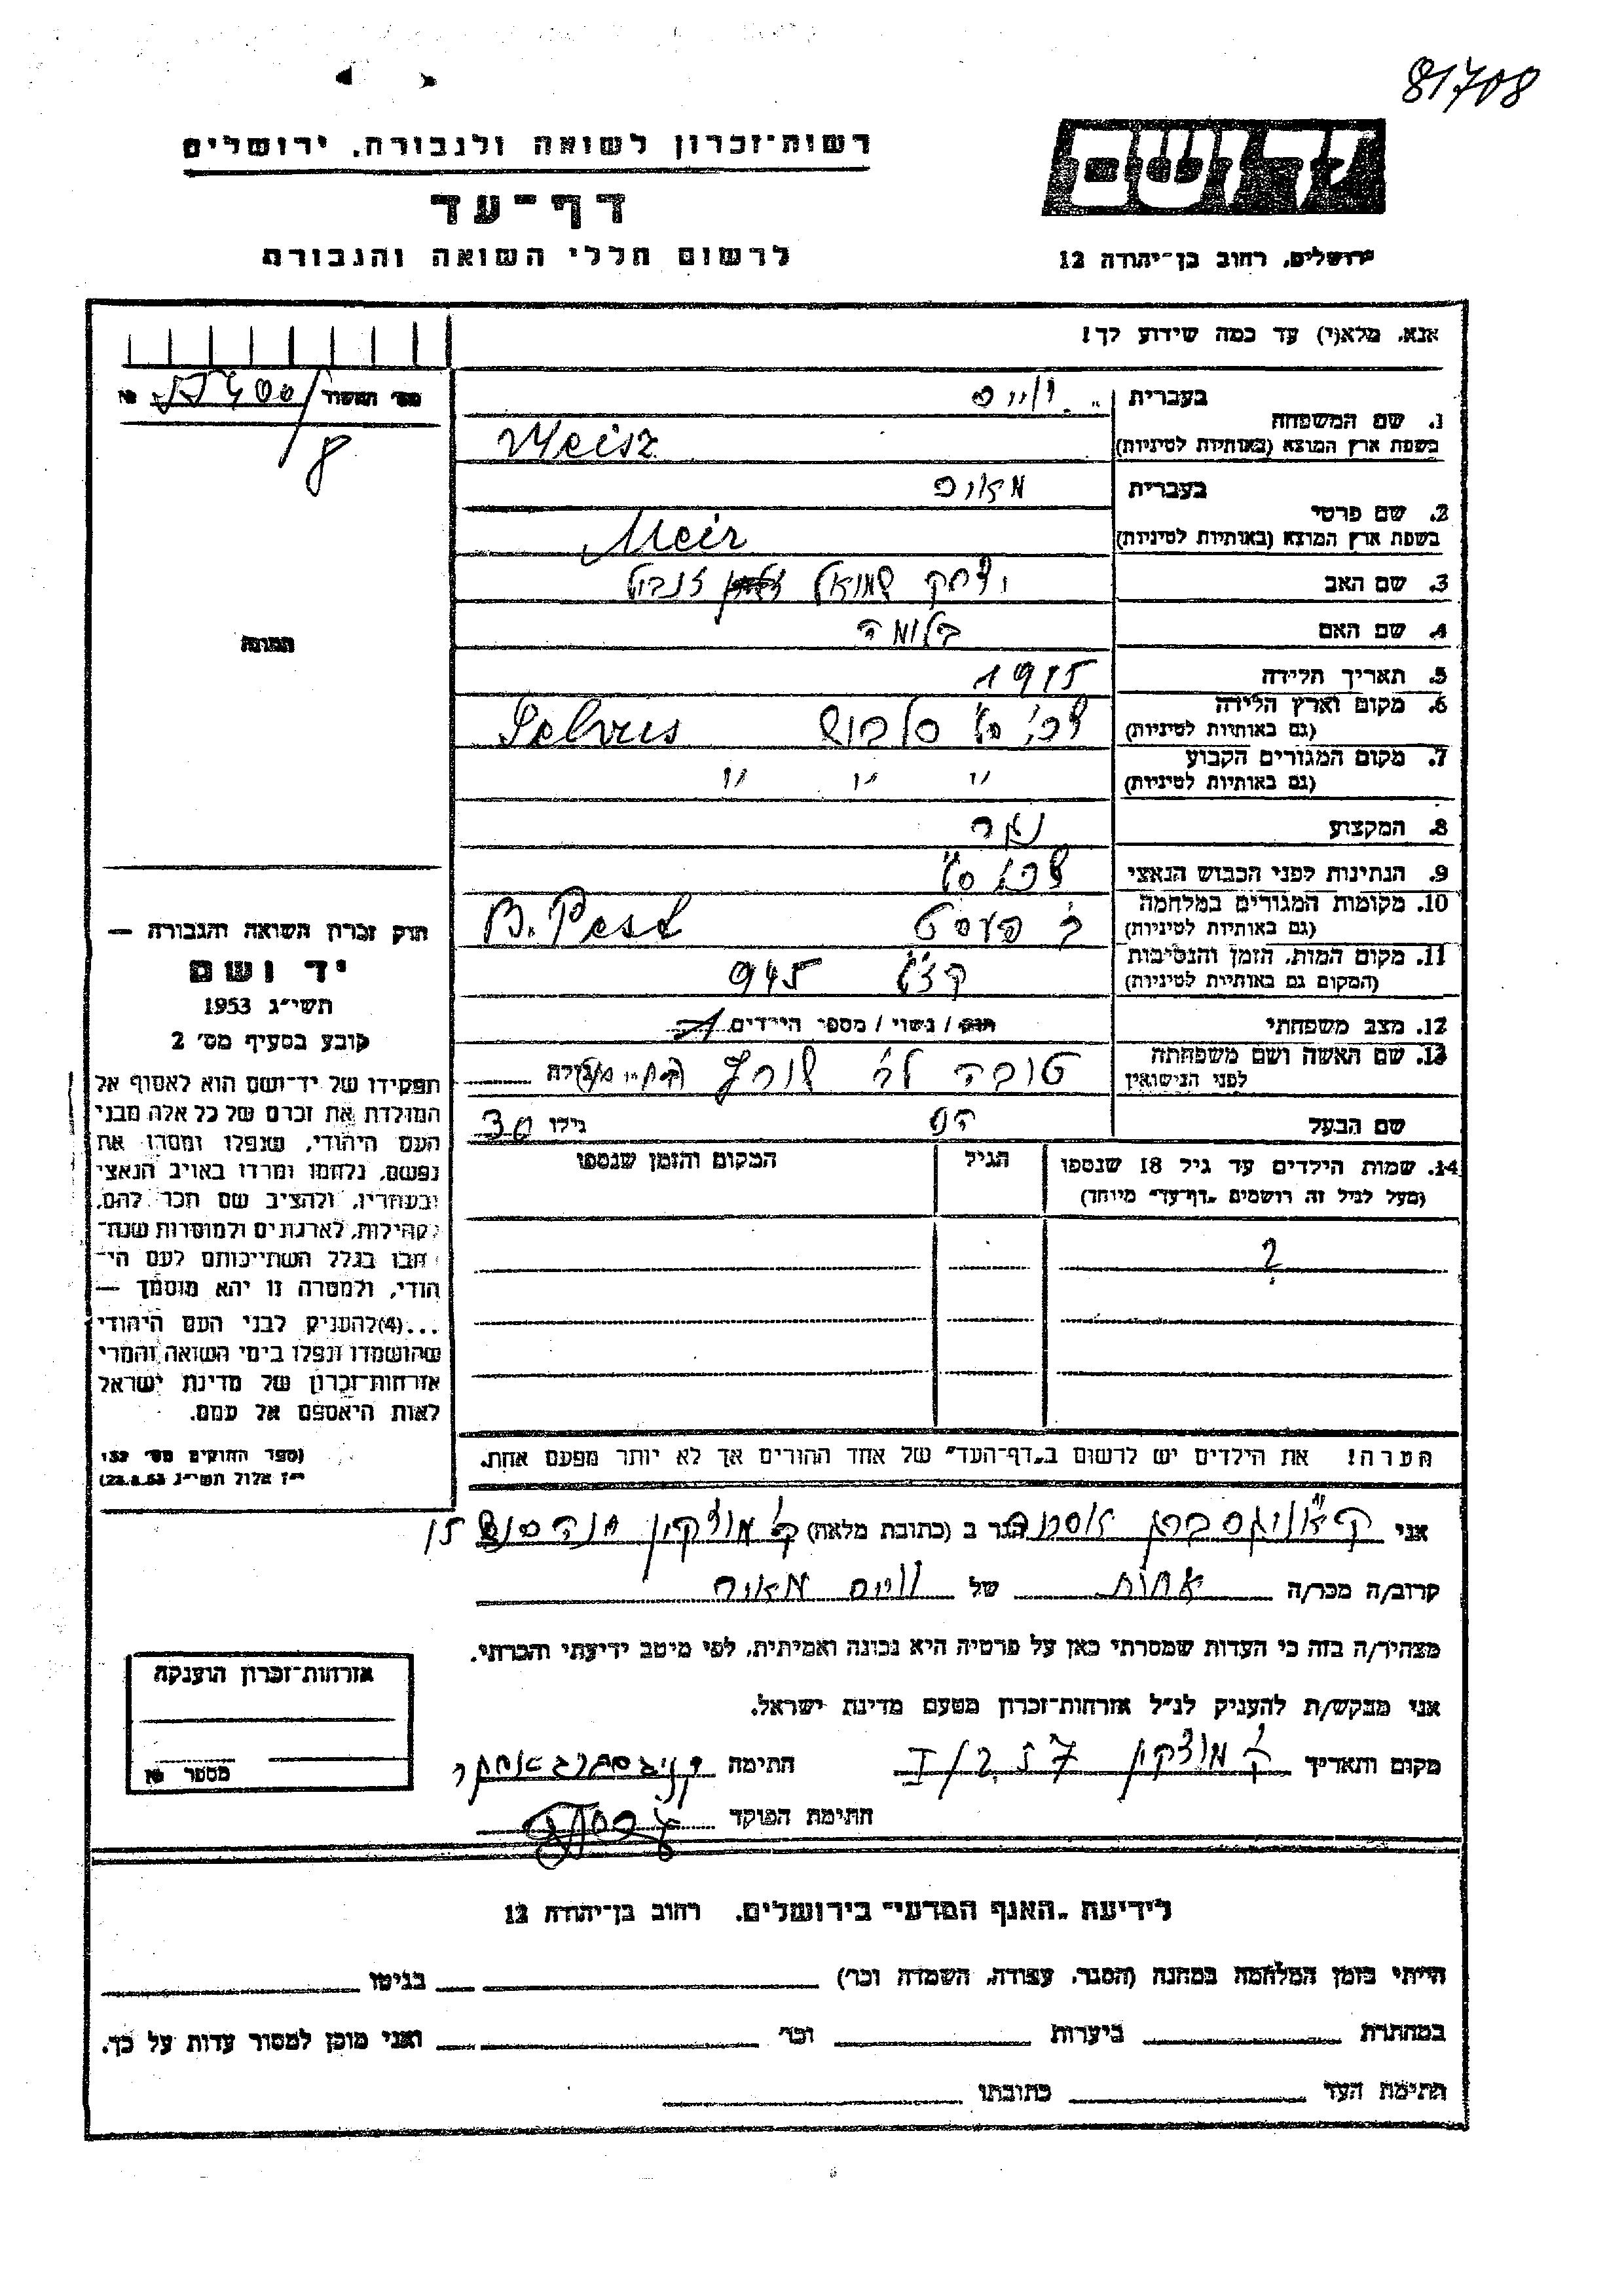 81708
רשות־זכרון לשואה ולגבורה, ירושלים
דף־עד
לרשום חללי השואה והגבורה
ידושם
ירושלים, רחוב בן־יהודה 12
אנא, מלא(י) עד כמה שידוע לך!
מס׳ תמשוד
8
1. שם המשפחה
בעברית ווייס
בשפת ארץ המוצא (באותיות לטיניות) Weisz
2. שם פרטי
בעברית מאיר
בשפת ארץ המוצא (באותיות לטיניות) Meir
3. שם האב יצחק שמואל
4. שם האם בלומה
5. תאריך הלידה 1915
6. מקום וארץ הלידה
(גם באותיות לטיניות)
7. מקום המגורים הקבוע " " "
(גם באותיות לטיניות)
8. המקצוע
9. הנתינות לפני הכבוש הנאצי
10. מקומות המגורים במלחמה ב׳ פעסט B. Pest
(גם באותיות לטיניות)
11. מקום המות, הזמן והנסיבות 945
(המקום גם באותיות לטיניות)
12. מצב משפחתי רווק / נשוי / מספר הילדים
13. שם האשה ושם משפחתה טובה
לפני הנישואין
שם הבעל גילו 30
14. שמות הילדים עד גיל 18 שנספו הגיל המקום והזמן שנספו
(מעל לגיל זה רושמים „דף־עד״ מיוחד)
?
הערה! את הילדים יש לרשום ב„דף־העד״ של אחד ההורים אך לא יותר מפעם אחת.
התמונה
חוק זכרון השואה והגבורה —
יד ושם
תשי״ג 1953
קובע בסעיף מס׳ 2
תפקידו של יד־ושם הוא לאסוף אל
המולדת את זכרם של כל אלה מבני
העם היהודי, שנפלו ומסרו את
נפשם, נלחמו ומרדו באויב הנאצי
ובעוזריו, ולהציב שם וזכר להם,
לקהילות, לארגונים ולמוסדות שנח־
רבו בגלל השתייכותם לעם הי־
הודי, ולמטרה זו יהא מוסמך —
...(4)להעניק לבני העם היהודי
שהושמדו ונפלו בימי השואה והמרי
אזרחות־זכרון של מדינת ישראל
לאות היאספם אל עמם.
(ספר החוקים מס׳ 132
י״ז אלול תשי״ג 28.8.53)
אני קעניגסברג אסתר הגר ב (כתובת מלאה) ק׳ מוצקין
קרוב/ה מכר/ה אחות של ווייס מאיר
מצהיר/ה בזה כי העדות שמסרתי כאן על פרטיה היא נכונה ואמיתית, לפי מיטב ידיעתי והכרתי.
אני מבקש/ת להעניק לנ״ל אזרחות־זכרון מטעם מדינת ישראל.
מקום ותאריך ק׳ מוצקין חתימה
חתימת הפוקד
אזרחות־זכרון הוענקה
מספר №
לידיעת „האגף המדעי״ בירושלים, רחוב בן־יהודה 12
הייתי בזמן המלחמה במחנה (הסגר, עבודה, השמדה וכו׳) בגיטו
במחתרת ביערות וכו׳ ואני מוכן למסור עדות על כך.
חתימת העד כתובתו